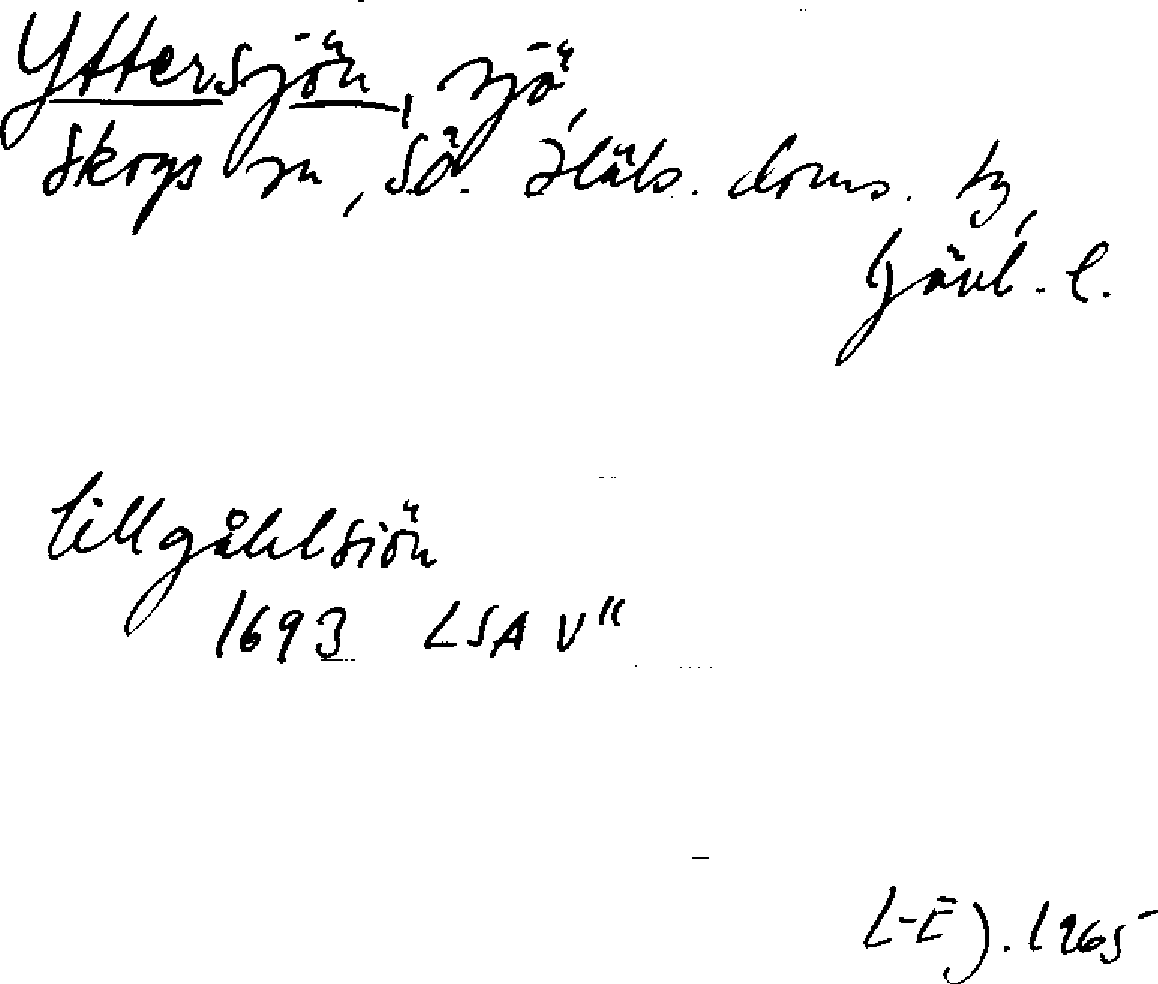 Yttersjön, sjö,
Skogs sn, Sö. Häls. doms. tg,
Gävl. l.
Lillgåhlsiön
1693 LSA V"
L-E J. 1965